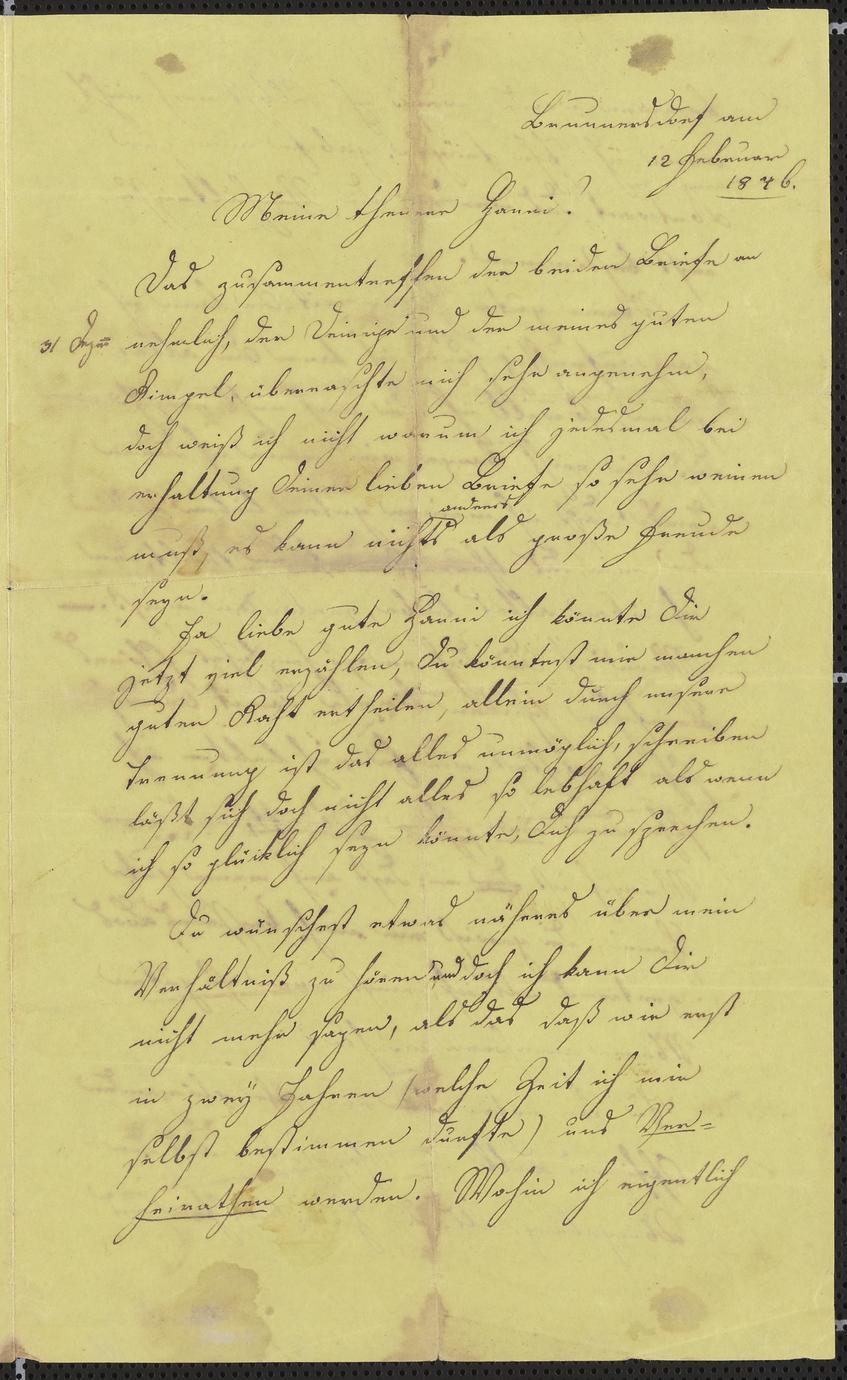 Brunnersdorf am
12 Februar
1846.
Meine theuere Hanni!
Das zusammentreffen der beiden Briefe an
31 Dezm
nehmlich, der Deinige und der meines guten
Rimpel, überraschte mich sehr angenehm,
doch weiß ich nicht warum ich jedesmal bei
erhaltung Deiner lieben Briefe so sehr weinen
anders
muß, es kann nichts als große Freude
seyn.
Ja liebe gute Hanni ich könnte Dir
jetzt viel erzählen, Du könntest mir manchen
guten Raht ertheilen, allein durch unsere
Trennung ist das alles unmöglich, schreiben
läßt sich doch nicht alles so lebhaft als wenn
ich so glücklich seyn könnte, Dich zu sprechen.
Du wünschest etwas näheres über mein
Verhältniß zu hören und doch ich kann Dir
nicht mehr sagen, als das daß wir erst
in zwey Jahren (welche Zeit ich mir
selbst bestimmen durfte) uns Ver=
heirathen werden. Wohin ich eigentlich